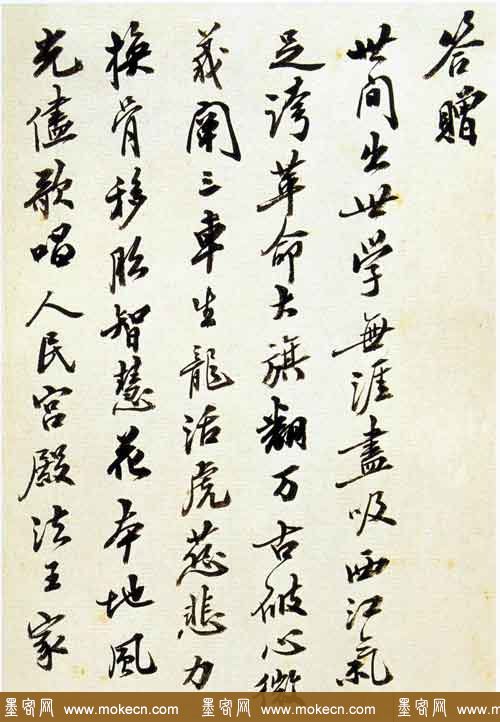 答贈
世间出世学無涯盡吸西江氣
足誇革命大旗翻万古破心微
義闡三車生龍活虎慈悲力
換骨移胎智慧花本地風
光儘歌唱人民宮殿法王家
墨客网 www.mokecn.com 墨客网 www.mokecn.com 墨客网 www.mokecn.com